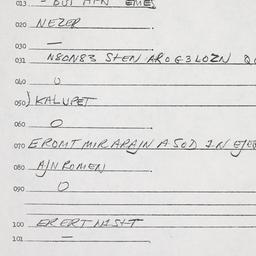 013 - BUT HTN EMES
020 NEZER
030 —
031 N8ON83 STEN AROG3LOZN
040 O
050) KALUPET
060 O
070 EROMT MIRARAJN A SOD IN
080 AJN ROMEN
090 O
100 ERERT NASHT
101 —